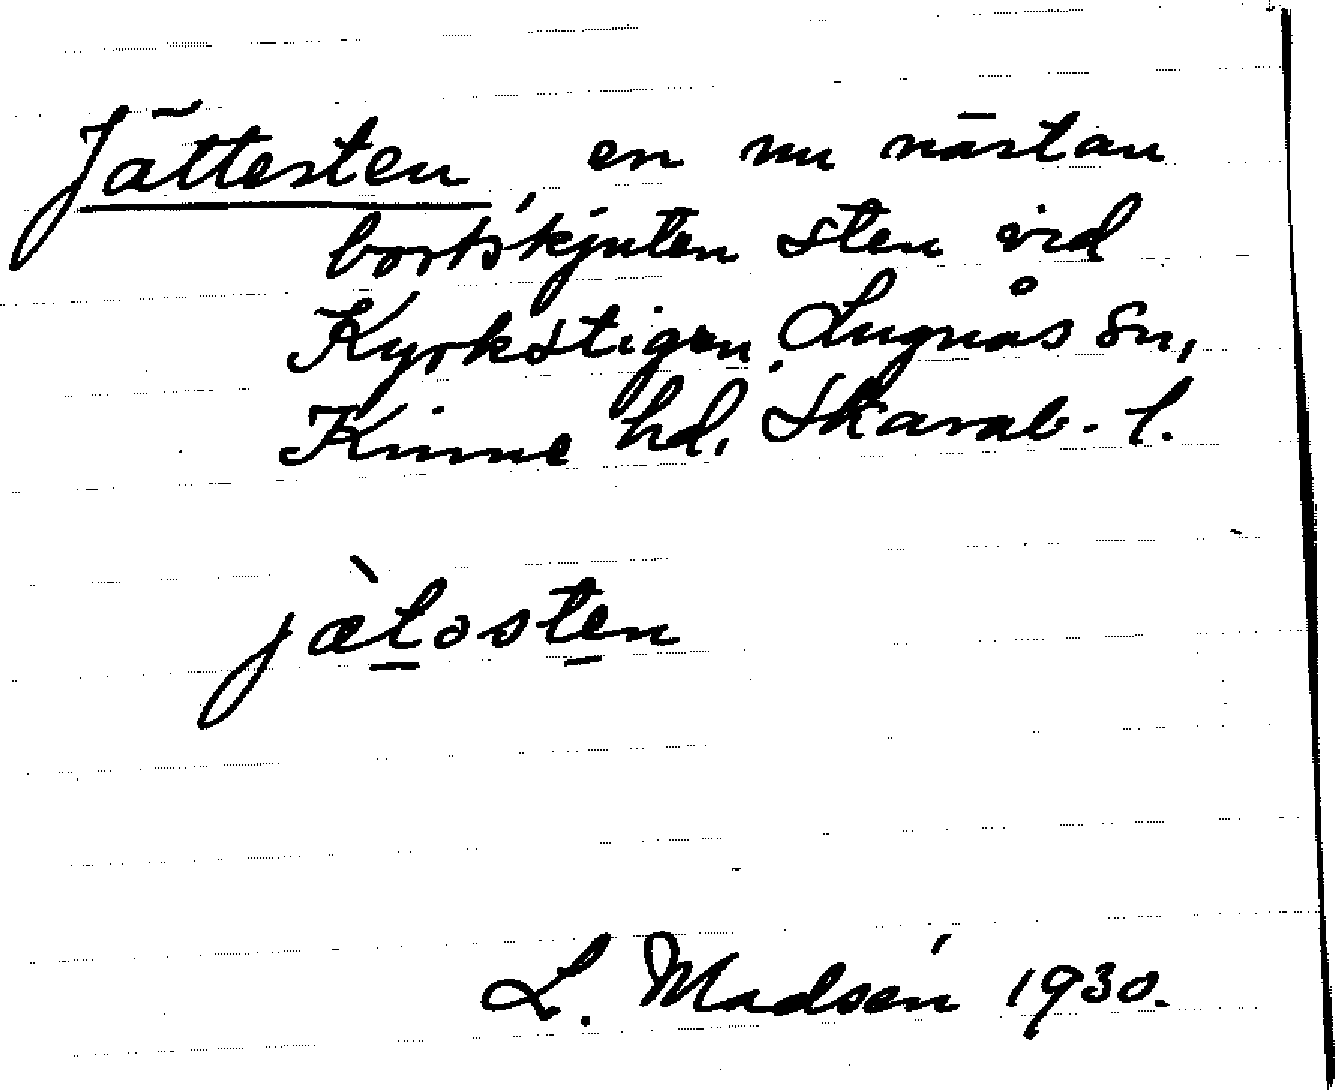 Jättesten, en nu nästan
bortskjuten sten vid
Kyrkstigen, Lugnås sn,
Kinne hd, Skarab. l.
jæ̀tosten
L. Madsén 1930.